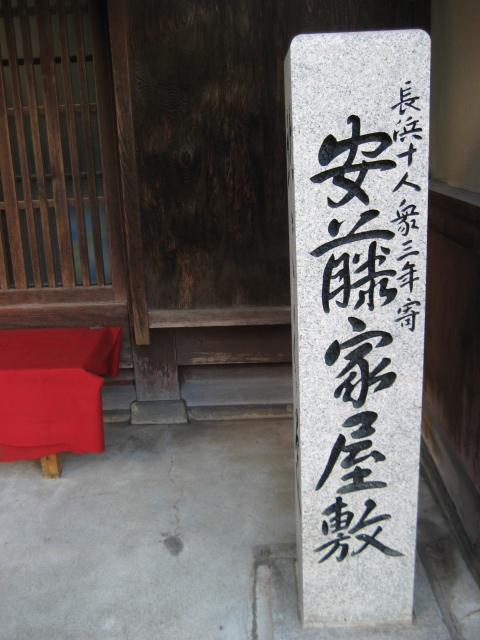 長浜十人衆三年寄
安藤家屋敷